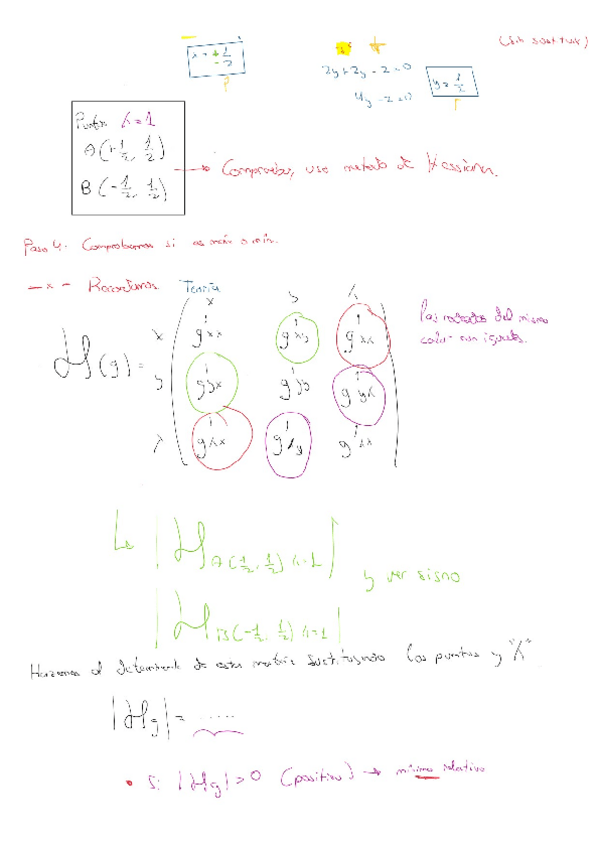 (sin sustituir)
x = ± 1/2
2y + 2y - 2 = 0
y = 1/2
4y - 2 = 0
Puntos λ = 1
A (+1/2, 1/2)
B (-1/2, 1/2)
→ Comprobar, uso metodo de Hessiana.
Paso 4. Comprobamos si es máx o mín.
- x - Recordamos Teoría
x y λ
x g'xx g'xy g'xλ
H(g) = y g'yx g'yy g'yλ
λ g'λx g'λy g'λλ
los rodeados del mismo
color son iguales.
|H A(1/2, 1/2) λ=1|
y ver signo
|H B(-1/2, 1/2) λ=1|
Hacemos el determinante de esta matriz sustituyendo los puntos y "λ"
|Hg| = ......
• Si |Hg| > 0 (positivo) → mínimo relativo